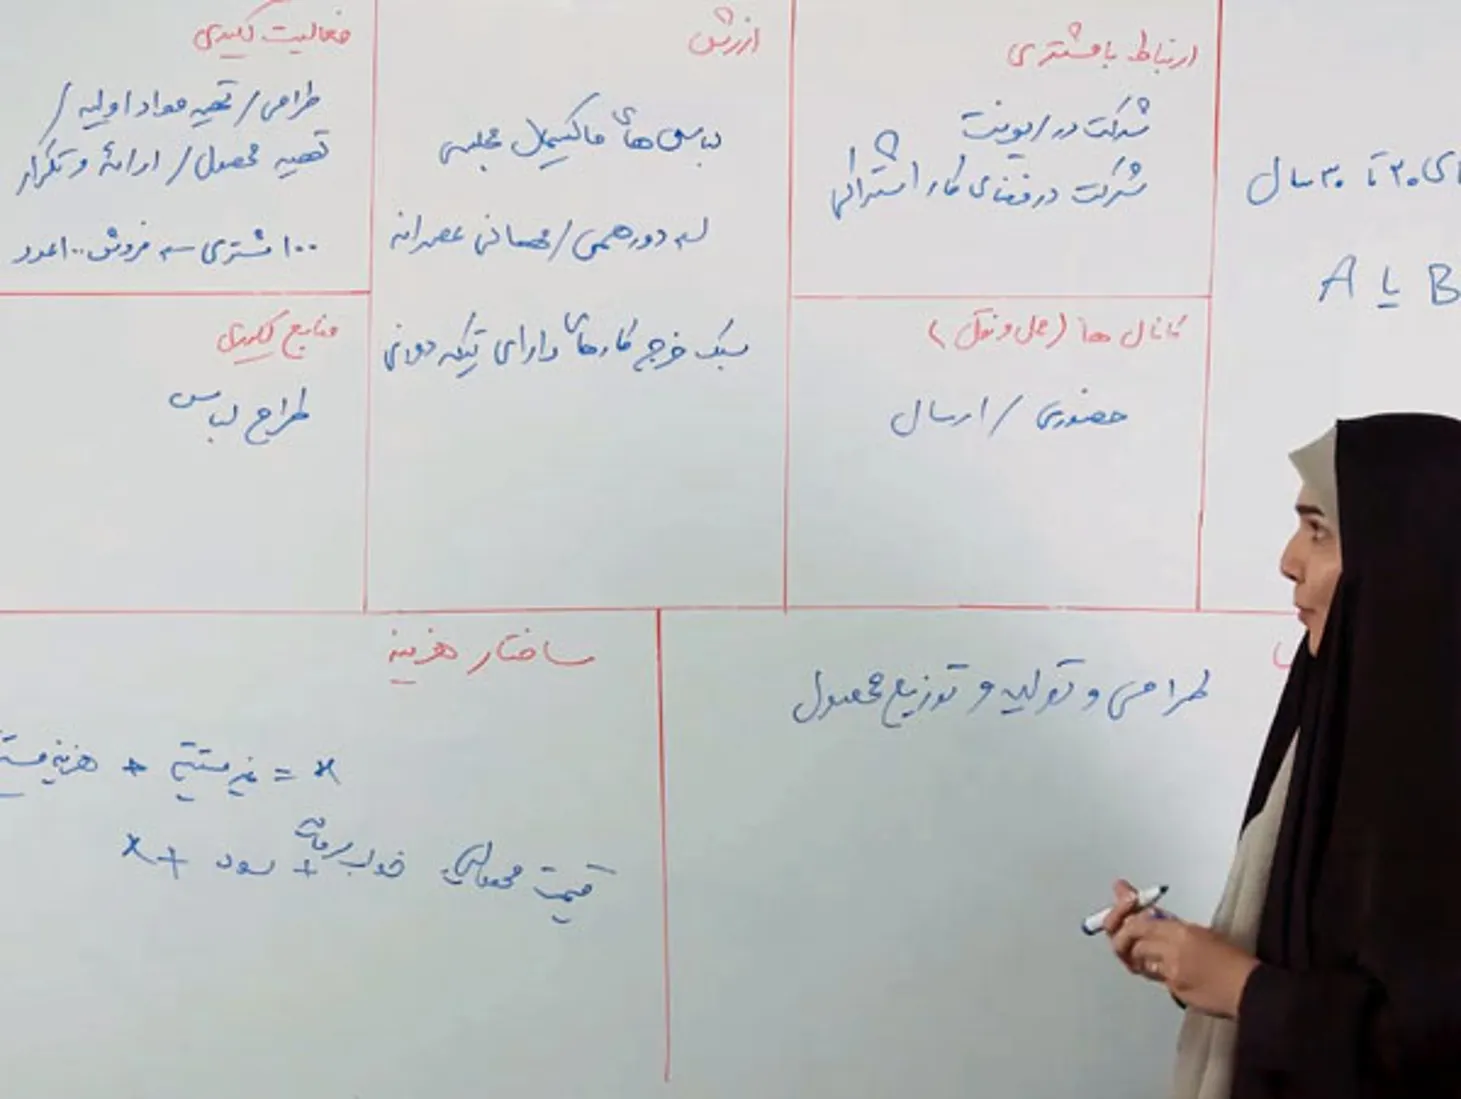 ی ۲۰ تا ۳۰ سال
A یا B
ارتباط با مشتری
شرکت در ایونت
شرکت در فضای کار اشتراکی
کانال ها (حمل و نقل)
حضوری / ارسال
ارزش
لباس های ماکسیمال مجلسی
دورهمی / مهمانی عصرانه
سبک خرج کارهای دارای تیکه دوزی
فعالیت کلیدی
طراحی / تهیه مواد اولیه /
تهیه محصول / ارائه و تکرار
۱۰۰ مشتری ← فروش ۱۰۰ عدد
منابع کلیدی
طراح لباس
طراحی و تولید و توزیع محصول
ساختار هزینه
x = غیر مستقیم + هزینه
قیمت محصول خواب سرمایه + سود + x